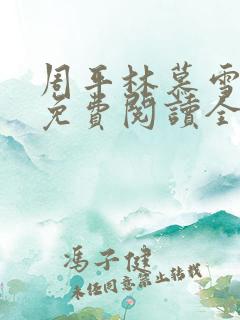 周平林慕雪
免費閱讀全
馮子健
未经同意禁止转载